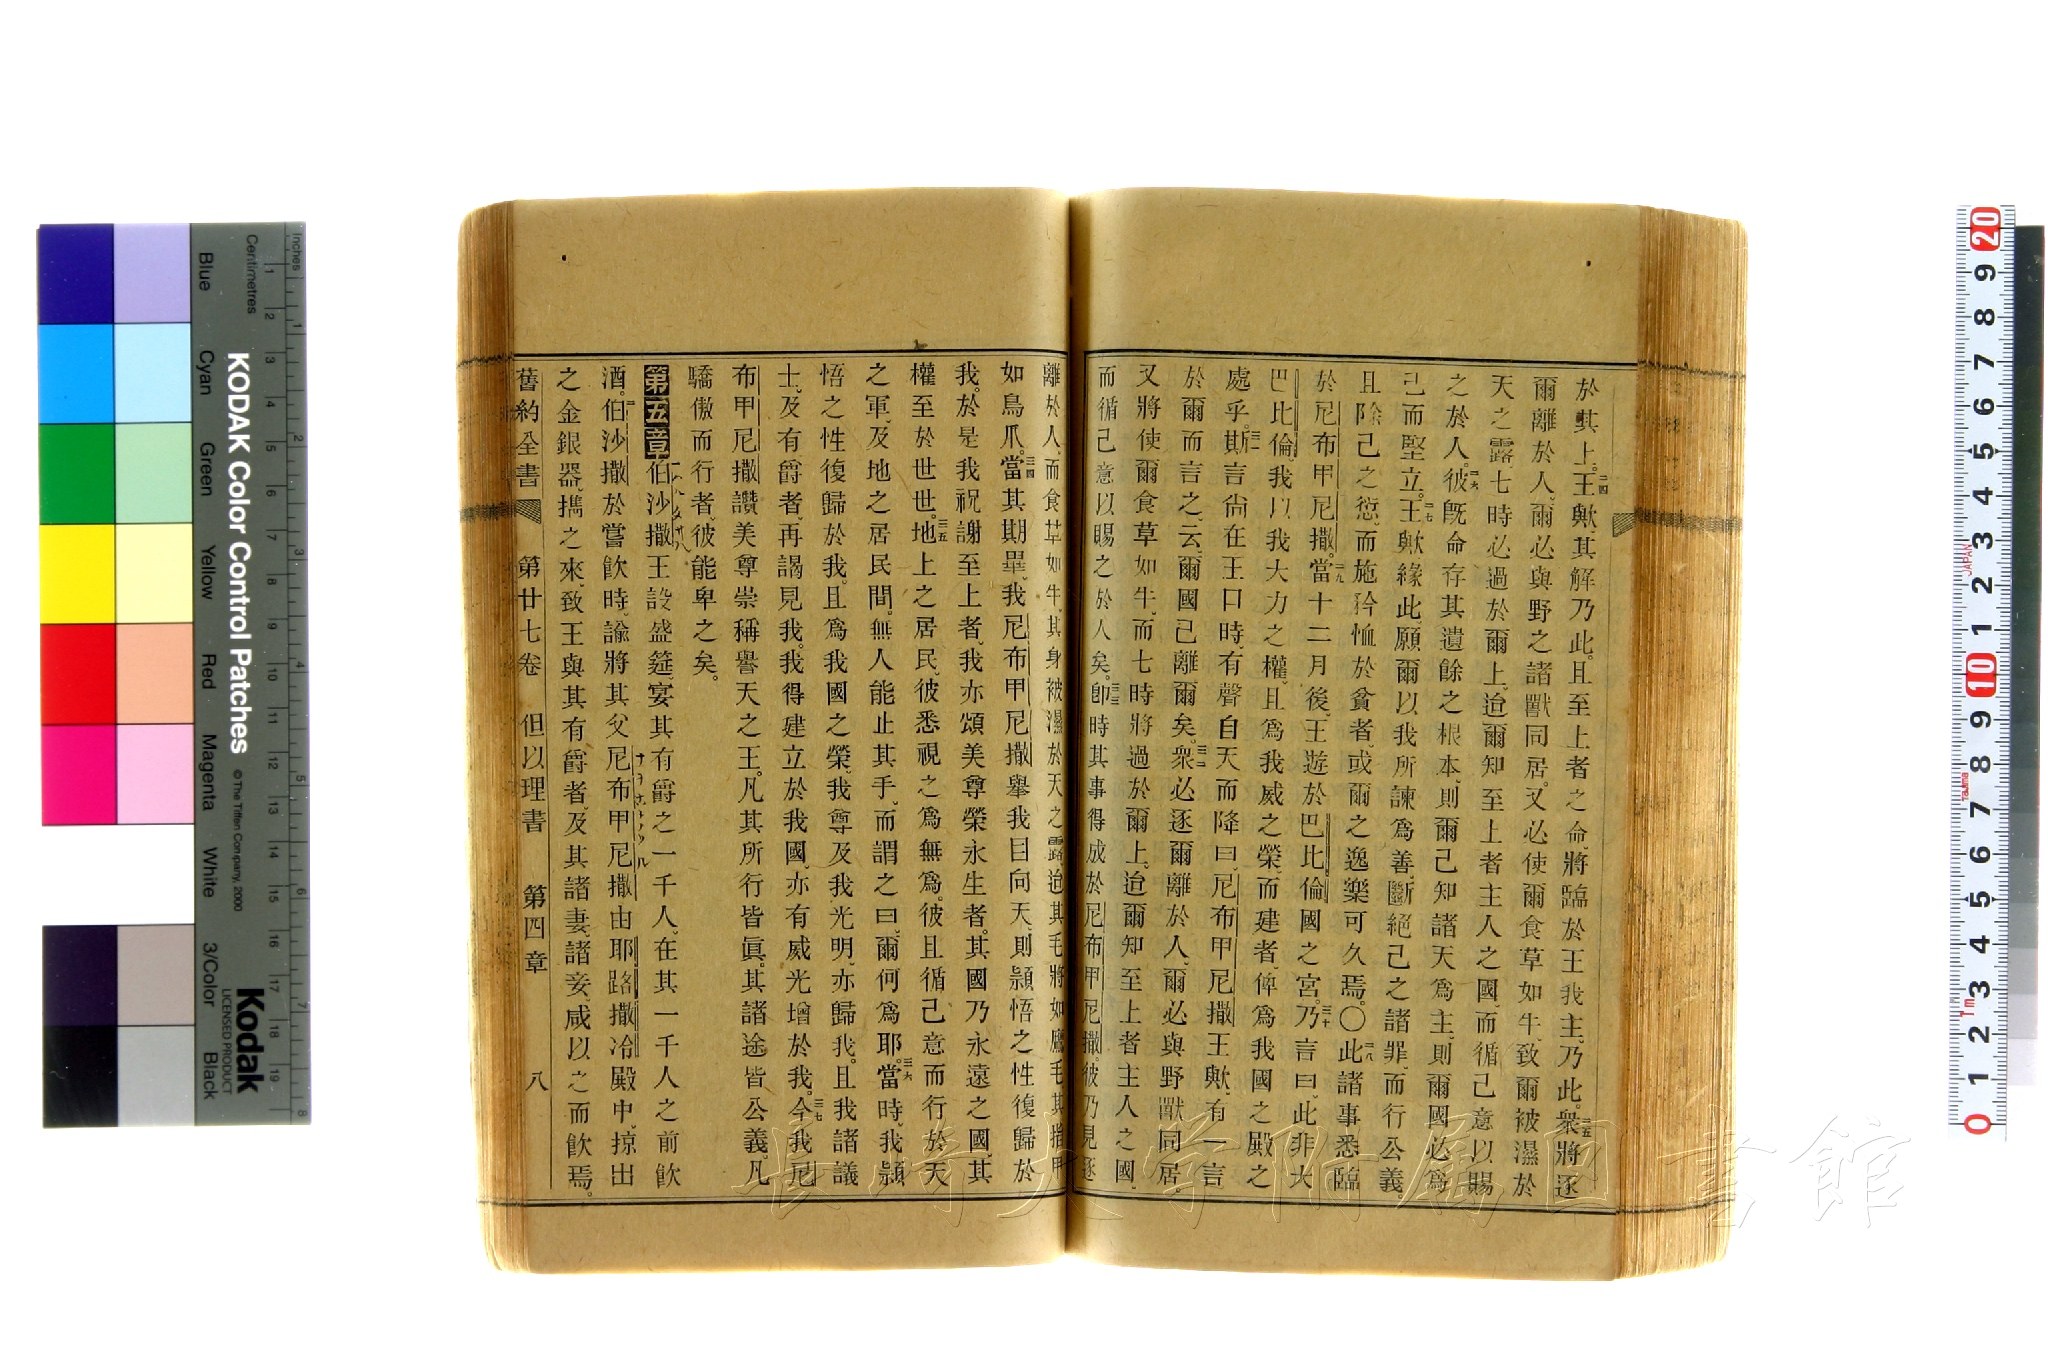 於其上。二四王歟、其解乃此。且至上者之命、將臨於王我主、乃此。二五衆將逐
爾離於人、爾必與野之諸獸同居。又必使爾食草如牛、致爾被濕於
天之露、七時必過於爾上、迨爾知至上者主人之國、而循己意以賜
之於人。二六彼旣命存其遺餘之根本、則爾己知諸天爲主、則爾國必爲
己而堅立。二七王歟、緣此、願爾以我所諫爲善、斷絕己之諸罪、而行公義、
且除己之愆、而施矜恤於貧者、或爾之逸樂可久焉。〇二八此諸事悉臨
於尼布甲尼撒。二九當十二月後、王遊於巴比倫國之宮。三十乃言曰、此非大
巴比倫、我以我大力之權、且爲我威之榮、而建者、俾爲我國之殿之
處乎。三一斯言尙在王口時、有聲自天而降曰、尼布甲尼撒王歟、有一言
於爾而言之、云、爾國己離爾矣。三二衆必逐爾離於人、爾必與野獸同居。
又將使爾食草如牛、而七時將過於爾上。迨爾知至上者主人之國、
而循己意以賜之於人矣。三三卽時其事得成於尼布甲尼撒。彼乃見逐
離於人、而食草如牛、其身被濕於天之露、迨其毛將如鷹毛、其指甲
如鳥爪。三四當其期畢、我尼布甲尼撒舉我目向天、則頴悟之性復歸於
我。於是我祝謝至上者、我亦頌美尊榮永生者。其國乃永遠之國、其
權至於世世。三五地上之居民、彼悉視之爲無爲。彼且循己意而行於天
之軍、及地之居民間。無人能止其手、而謂之曰、爾何爲耶。三六當時、我頴
悟之性復歸於我。且爲我國之榮、我尊及我光明、亦歸我。且我諸議
士、及有爵者、再謁見我。我得建立於我國、亦有威光增於我。三七今我尼
布甲尼撒讚美尊崇稱譽天之王。凡其所行皆眞。其諸途皆公義。凡
驕傲而行者、彼能卑之矣。
第五章 伯沙撒王設盛筵、宴其有爵之一千人、在其一千人之前飮
酒。二伯沙撒於嘗飮時、諭將其父尼布甲尼撒由耶路撒冷殿中、掠出
之金銀器、攜之來、致王與其有爵者、及其諸妻、諸妾、咸以之而飮焉。
舊約全書 第廿七卷 但以理書 第四章 八
長崎大学附属図書館
KODAK Color Control Patches
© The Tiffen Company, 2000
Kodak
LICENSED PRODUCT
Inches
Centimetres
Blue
Cyan
Green
Yellow
Red
Magenta
White
3/Color
Black
JAPAN
Tajima